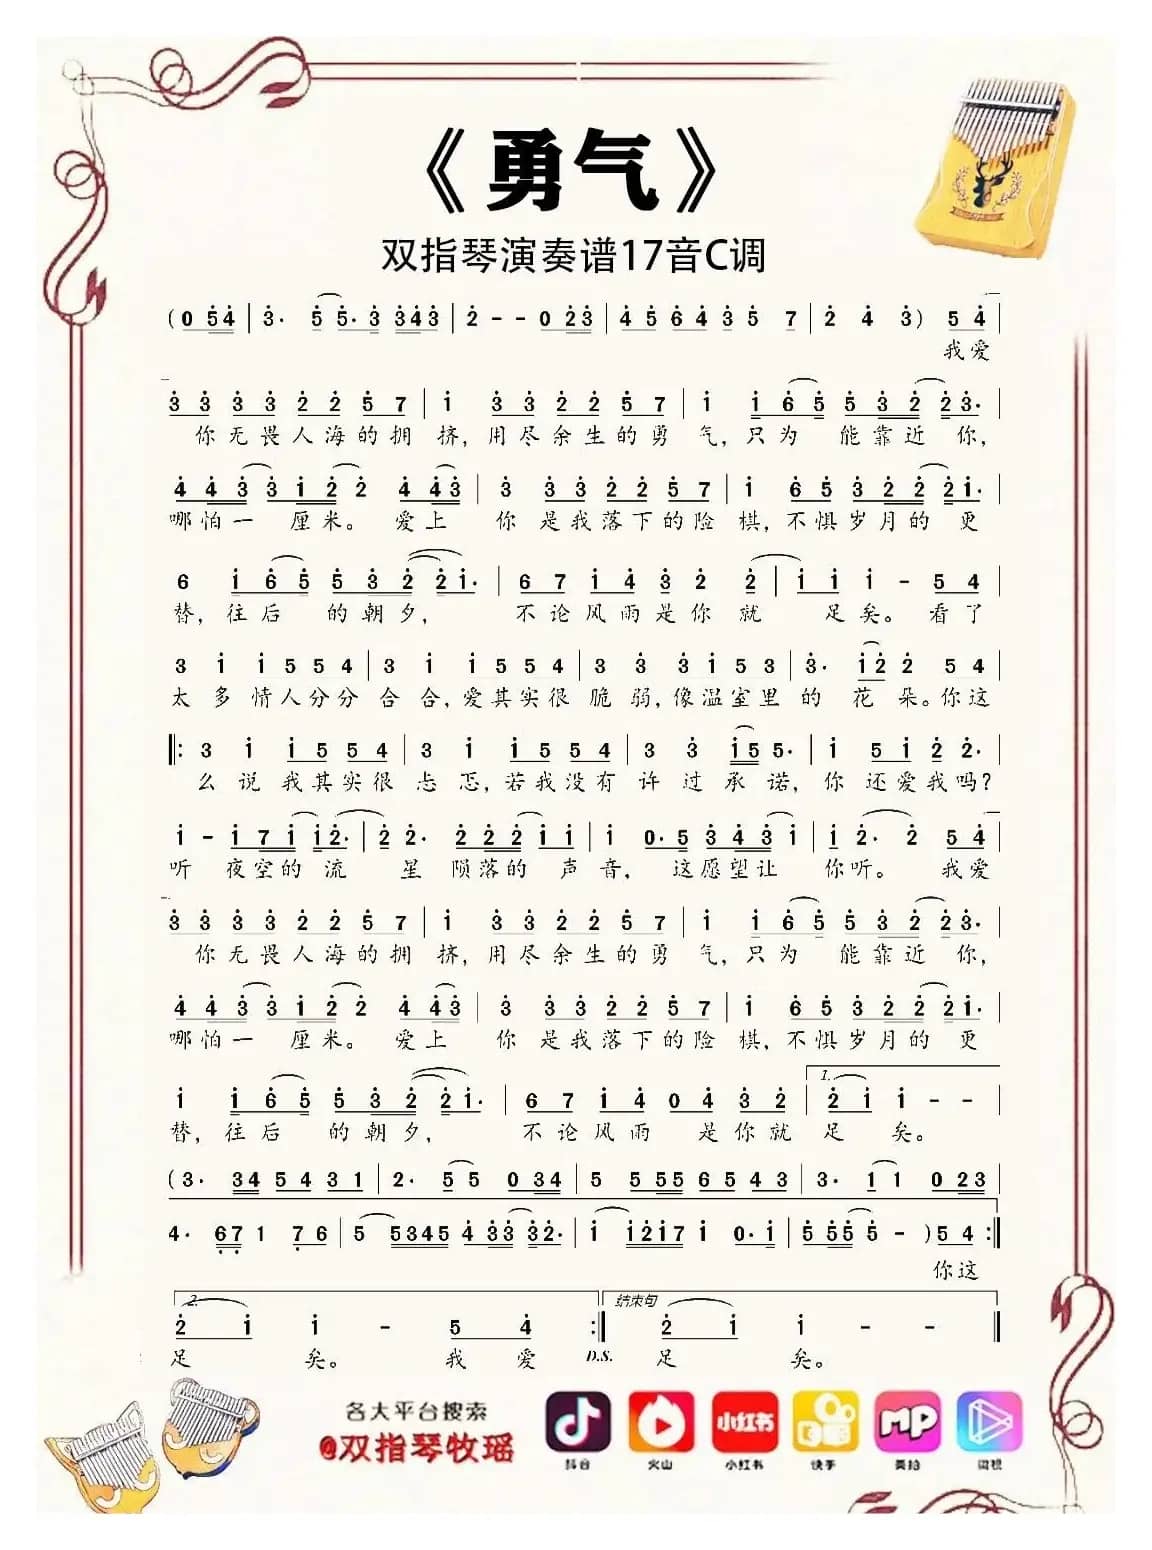 《勇气》
双指琴演奏谱17音C调
(0 5̇4̇ | 3̇· 5̇ 5̇·3̇ 3̇4̇3̇ | 2̇ - - 0 2̇3̇ | 4̇ 5̇ 6̇ 4̇ 3̇ 5̇ 7 | 2̇ 4̇ 3̇) 5̇ 4̇ |
我爱
3̇ 3̇ 3̇ 3̇ 2̇ 2̇ 5̇ 7 | i 3̇ 3̇ 2̇ 2̇ 5̇ 7 | i i 6̇ 5̇ 5̇ 3̇ 2̇ 2̇ 3̇· |
你无畏人海的拥 挤,用尽余生的勇 气,只为 能靠近你,
4̇ 4̇ 3̇ 3̇ i 2̇ 2̇ 4̇ 4̇3̇ | 3̇ 3̇ 3̇ 2̇ 2̇ 5̇ 7 | i 6̇ 5̇ 3̇ 2̇ 2̇ 2̇ i· |
哪怕一 厘米。 爱上 你 是我落下的险 棋,不惧岁月的 更
6 i 6̇ 5̇ 5̇ 3̇ 2̇ 2̇ i· | 6 7 i 4̇ 3̇ 2̇ 2̇ | i i i - 5 4 |
替,往后 的朝夕, 不论风雨是你就 足矣。看了
3 i i 5 5 4 | 3 i i 5 5 4 | 3 3̇ 3̇ i 5 3 | 3· i 2̇ 2̇ 5 4 |
太多情人分分 合合,爱其实很 脆弱,像温室里 的花朵。你这
3 i i 5 5 4 | 3 i i 5 5 4 | 3 3̇ i 5 5· | i 5 i 2̇ 2̇· |
么说我其实很 忐忑,若我没有 许过承诺, 你还爱我吗?
i - i 7 i i 2̇· | 2̇ 2̇· 2̇ 2̇ 2̇ i i | i 0·5 3̇ 4̇ 3̇ i | i 2̇· 2̇ 5̇ 4̇ |
听 夜空的流 星 陨落的声音, 这愿望让 你听。 我爱
3̇ 3̇ 3̇ 3̇ 2̇ 2̇ 5̇ 7 | i 3̇ 3̇ 2̇ 2̇ 5̇ 7 | i i 6̇ 5̇ 5̇ 3̇ 2̇ 2̇ 3̇· |
你无畏人海的拥 挤,用尽余生的勇 气,只为 能靠近你,
4̇ 4̇ 3̇ 3̇ i 2̇ 2̇ 4̇ 4̇3̇ | 3̇ 3̇ 3̇ 2̇ 2̇ 5̇ 7 | i 6̇ 5̇ 3̇ 2̇ 2̇ 2̇ i· |
哪怕一 厘米。 爱上 你 是我落下的险 棋,不惧岁月的 更
1.
i i 6̇ 5̇ 5̇ 3̇ 2̇ 2̇ i· | 6 7 i 4̇ 0 4̇ 3̇ 2̇ | 2̇ i i - - |
替,往后 的朝夕, 不论风雨 是你就 足 矣。
(3· 34 5 4 3 1 | 2· 5 5 0 34 | 5 5 55 6 5 4 3 | 3· 1 1 0 23 |
4· 6̣7̣ 1 7̣ 6 | 5 5345 4̇ 3̇3̇ 3̇2̇· | i i2̇i7 i 0·i | 5̇ 5̇5̇ 5̇ - )5 4 :‖
你这
2. 结束句
2̇ i i - 5̇ 4̇ :‖ 2̇ i i - - ‖
足 矣。 我 爱 D.S. 足 矣。
各大平台搜索
@双指琴牧瑶
小红书
MP
抖音 火山 小红书 快手 美拍